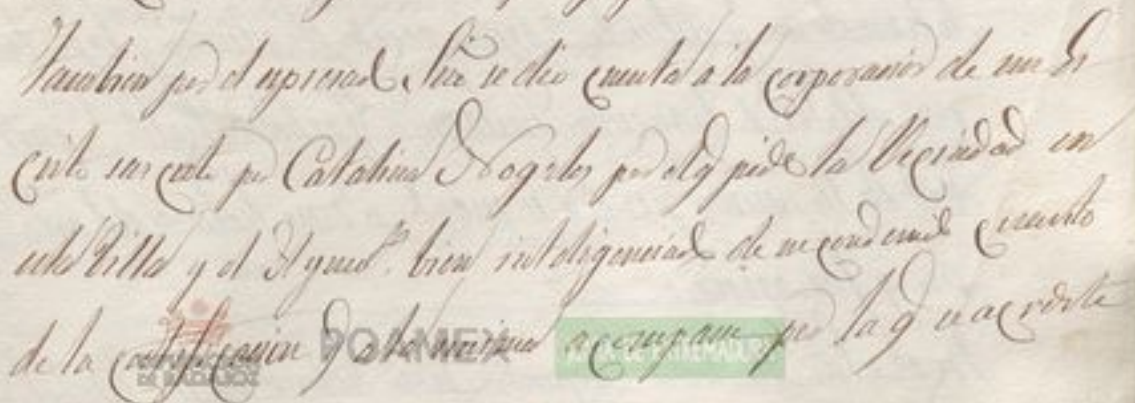 Tambien por el espresad Srio se dio cuenta a la corporacion de un Es
crito suscrito por Catalina Nogales por el q pide la Veciudad en
esta Villa y el Aymto bien inteligenciad de su contenid
de la certificacion q a la misma acompaña por la q se acredita
POAMEX
JUNTA DE EXTREMADURA